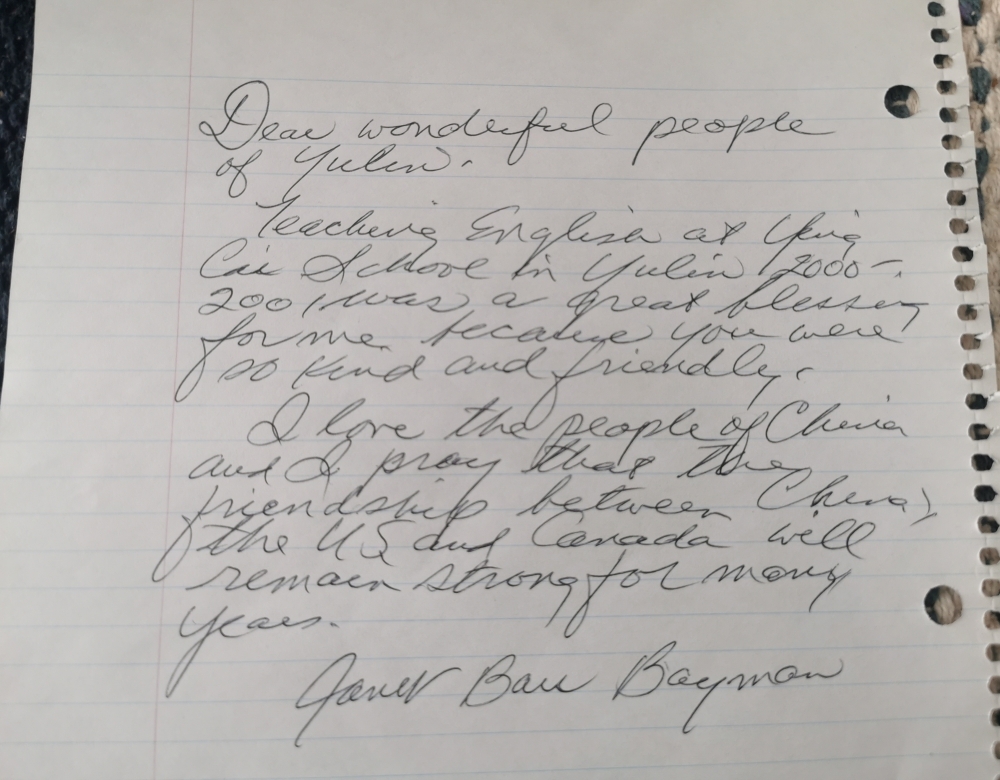 Dear wonderful people
of Yulin.
Teaching English at Ying
Cai School in Yulin 2000-
2001 was a great blessing
for me because you were
so kind and friendly.
I love the people of China
and I pray that the
friendship between China,
the US and Canada will
remain strong for many
years.
Janet Barr Bayman